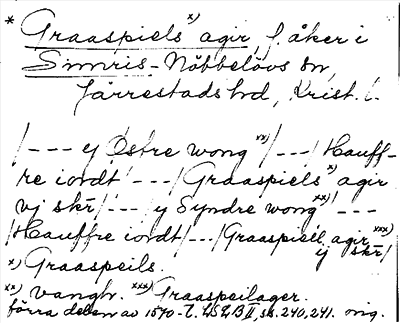 * Graaspiels x) agir, f. åker i
Simris-Nöbbelövs sn,
Järrestads hd, Krist. l.
/--- y Östre wong xx) /---/ Hauff-
re iordt /---/ Graaspiels x) agir
vj skr̄ /---/ y Syndre wong xx) /---
/Hauffre iordt /---/ Graaspieil agir xxx)
y skr̄/
x) Graaspeils.
xx) vangh. xxx) Graaspeilager.
förra delen av 1570-t. LSt, B II, sk. 240, 241. orig.